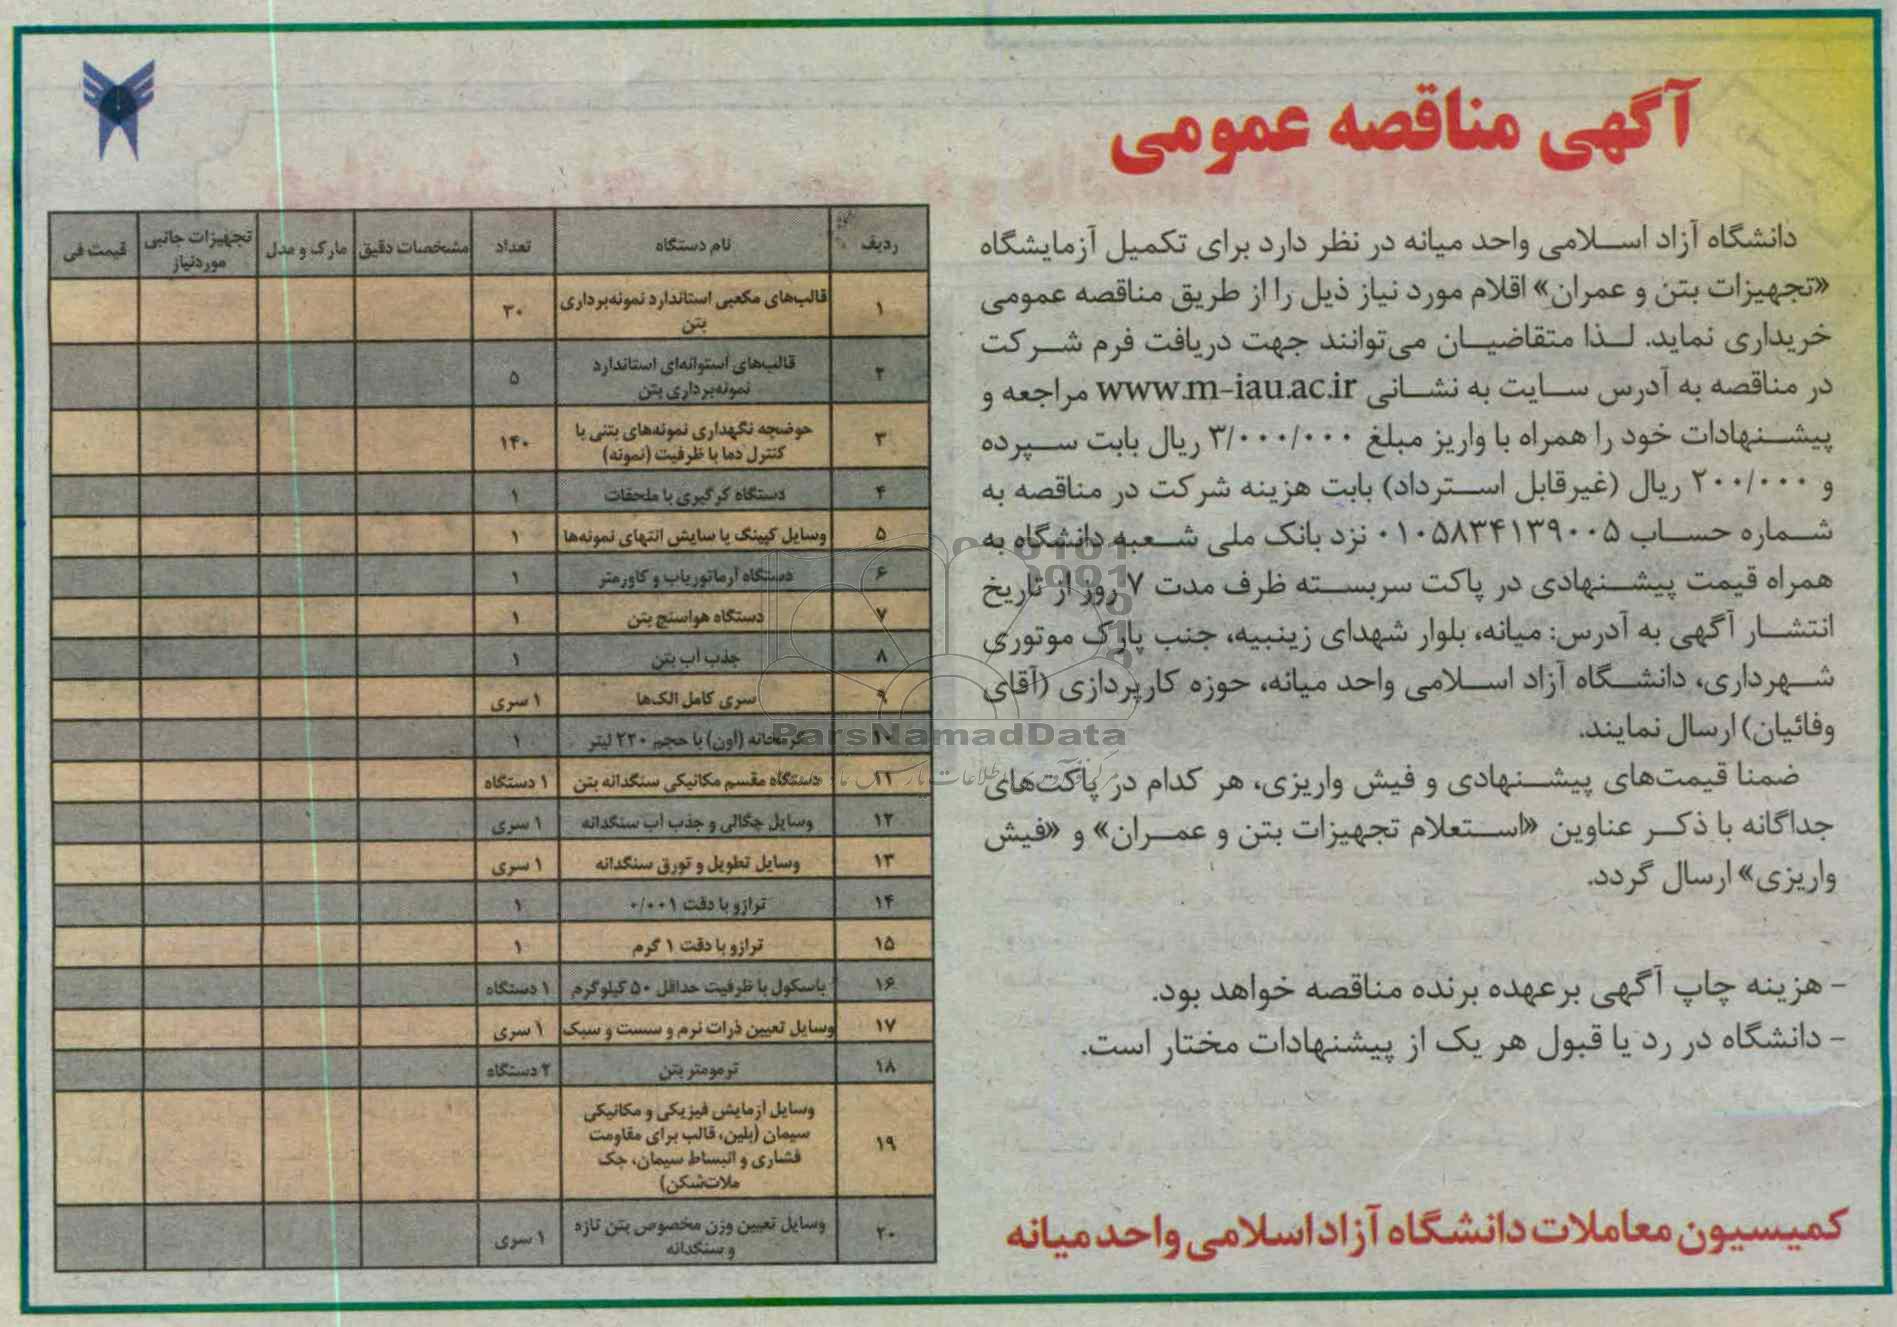 آگهی مناقصه عمومی
دانشگاه آزاد اسلامی واحد میانه در نظر دارد برای تکمیل آزمایشگاه
«تجهیزات بتن و عمران» اقلام مورد نیاز ذیل را از طریق مناقصه عمومی
خریداری نماید. لذا متقاضیان می‌توانند جهت دریافت فرم شرکت
در مناقصه به آدرس سایت به نشانی www.m-iau.ac.ir مراجعه و
پیشنهادات خود را همراه با واریز مبلغ ۳/۰۰۰/۰۰۰ ریال بابت سپرده
و ۲۰۰/۰۰۰ ریال (غیرقابل استرداد) بابت هزینه شرکت در مناقصه به
شماره حساب ۰۱۰۵۸۳۴۱۳۹۰۰۵ نزد بانک ملی شعبه دانشگاه به
همراه قیمت پیشنهادی در پاکت سربسته ظرف مدت ۷ روز از تاریخ
انتشار آگهی به آدرس: میانه، بلوار شهدای زینبیه، جنب پارک موتوری
شهرداری، دانشگاه آزاد اسلامی واحد میانه، حوزه کارپردازی (آقای
وفائیان) ارسال نمایند.
ضمنا قیمت‌های پیشنهادی و فیش واریزی، هر کدام در پاکت‌های
جداگانه با ذکر عناوین «استعلام تجهیزات بتن و عمران» و «فیش
واریزی» ارسال گردد.
- هزینه چاپ آگهی برعهده برنده مناقصه خواهد بود.
- دانشگاه در رد یا قبول هر یک از پیشنهادات مختار است.
کمیسیون معاملات دانشگاه آزاد اسلامی واحد میانه
ردیف نام دستگاه تعداد مشخصات دقیق مارک و مدل تجهیزات جانبی موردنیاز قیمت فی
۱ قالب‌های مکعبی استاندارد نمونه‌برداری ۳۰
بتن
۲ قالب‌های استوانه‌ای استاندارد ۵
نمونه‌برداری بتن
۳ حوضچه نگهداری نمونه‌های بتنی با ۱۴۰
کنترل دما با ظرفیت (نمونه)
۴ دستگاه کرگیری با ملحقات ۱
۵ وسایل کپینگ یا سایش انتهای نمونه‌ها ۱
۶ دستگاه آرماتوریاب و کاورمتر ۱
۷ دستگاه هواسنج بتن ۱
۸ جذب آب بتن ۱
۹ سری کامل الک‌ها ۱ سری
۱۰ گرمخانه (اون) با حجم ۲۲۰ لیتر ۱
۱۱ دستگاه مقسم مکانیکی سنگدانه بتن ۱ دستگاه
۱۲ وسایل چگالی و جذب آب سنگدانه ۱ سری
۱۳ وسایل تطویل و تورق سنگدانه ۱ سری
۱۴ ترازو با دقت ۰/۰۰۱ ۱
۱۵ ترازو با دقت ۱ گرم ۱
۱۶ باسکول با ظرفیت حداقل ۵۰ کیلوگرم ۱ دستگاه
۱۷ وسایل تعیین ذرات نرم و سست و سبک ۱ سری
۱۸ ترمومتر بتن ۲ دستگاه
۱۹ وسایل آزمایش فیزیکی و مکانیکی
سیمان (بلین، قالب برای مقاومت
فشاری و انبساط سیمان، جک
ملات‌شکن)
۲۰ وسایل تعیین وزن مخصوص بتن تازه ۱ سری
و سنگدانه
ParsNamadData